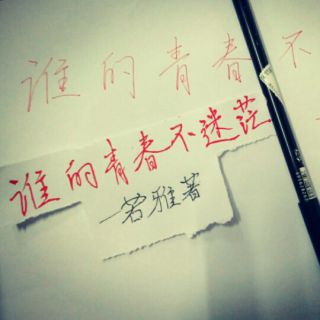 谁的青春不
谁的青春不迷茫
一若雅著